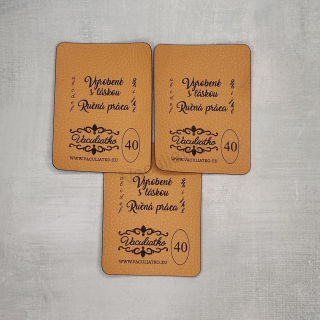 Vyrobené
s láskou
Ručná práca
Vaculiatko
40
WWW.VACULIATKO.EU
Vyrobené
s láskou
Ručná práca
Vaculiatko
40
WWW.VACULIATKO.EU
Vyrobené
s láskou
Ručná práca
Vaculiatko
40
WWW.VACULIATKO.EU